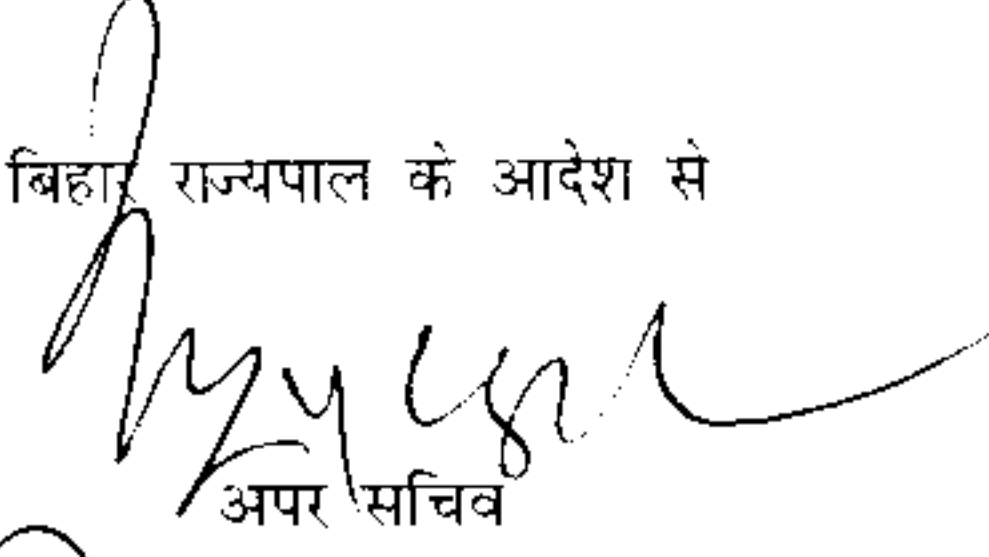 बिहार राज्यपाल के आदेश से
अपर सचिव